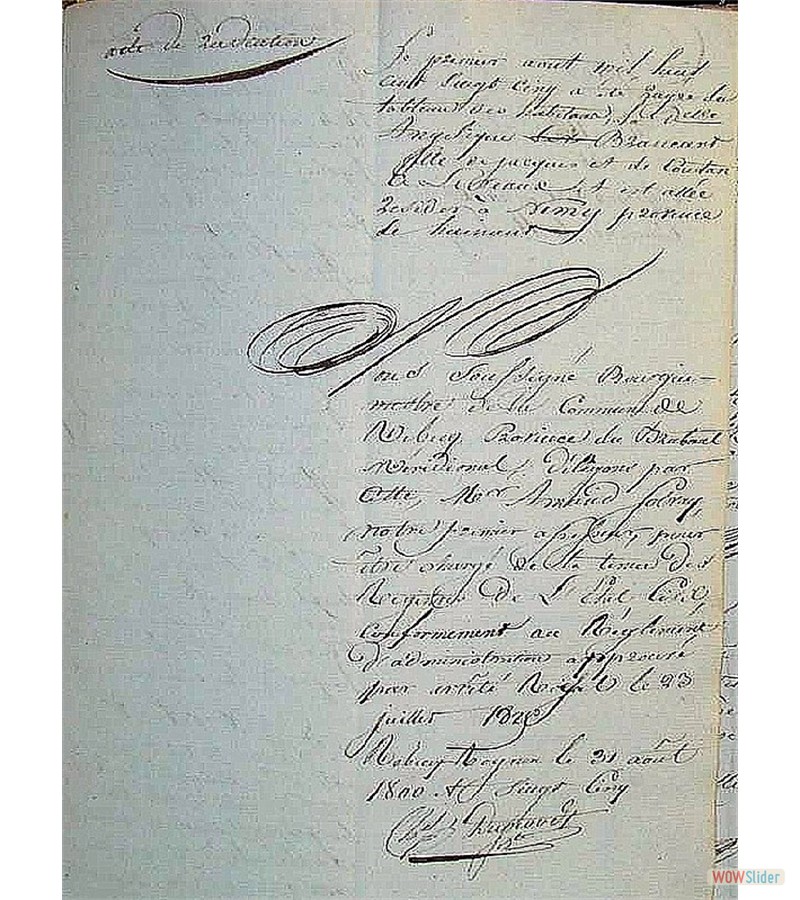 acte de Radiation
Le premier aout mil huit
cent vingt Cinq a été rayée du
tableau des habitans, la delle
Angelique Brancart
fille de jacques et de Constan
ce et est allée
Resider à province
de hainaut
ous Soussigné Bourgue-
mestre de la Commune de
Rebecq Province du Brabant
Meridional, deleguons par
Cette, Mosr Armand
notre premier assesseur, pour
être chargé de la tenue des
Registres de L'Etat Civil
conformement au Réglement
d'administration approuvé
par arrêté Royal le 23
juillet 1825
Rebecq Rognon le 31 août
1800 et vingt Cinq